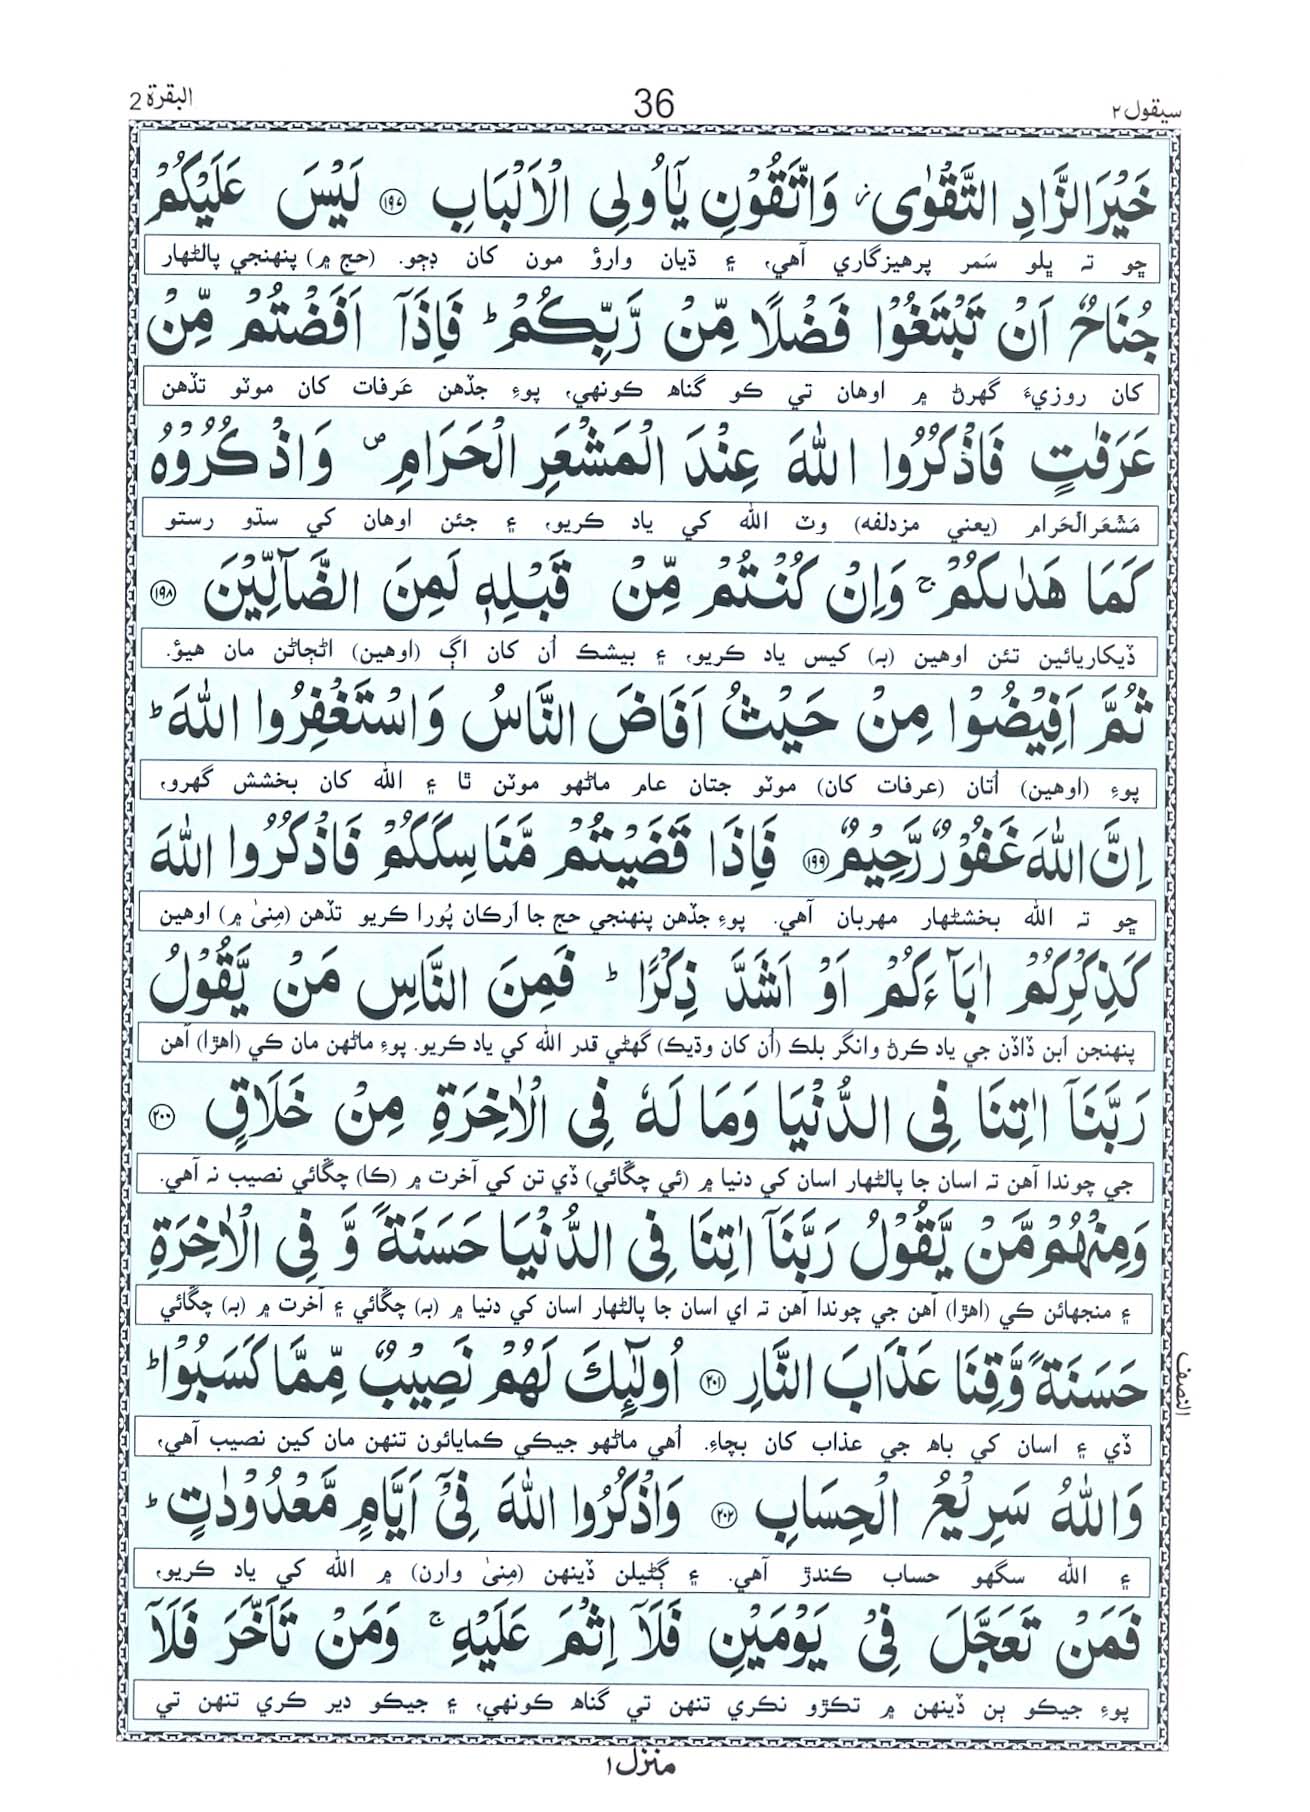 سيقول ٢
36
البقرة 2
خَيْرَ الزَّادِ التَّقْوٰى ۫ وَاتَّقُوْنِ يٰۤاُولِى الْاَلْبَابِ ﴿۱۹۷﴾ لَيْسَ عَلَيْكُمْ
ڇو تہ ڀلو سَمر پرهيزگاري آهي، ۽ ڌيان وارؤ مون کان ڊڄو. (حج ۾) پنهنجي پالڻهار
جُنَاحٌ اَنْ تَبْتَغُوْا فَضْلًا مِّنْ رَّبِّكُمْ ؕ فَاِذَاۤ اَفَضْتُمْ مِّنْ
کان روزيءَ گهرڻ ۾ اوهان تي ڪو گناه ڪونهي، پوءِ جڏهن عَرفات کان موٽو تڏهن
عَرَفٰتٍ فَاذْكُرُوا اللّٰهَ عِنْدَ الْمَشْعَرِ الْحَرَامِ ۪ وَاذْكُرُوْهُ
مَشْعَرالحَرام (يعني مزدلفه) وٽ الله کي ياد ڪريو، ۽ جئن اوهان کي سڌو رستو
كَمَا هَدٰىكُمْ ۚ وَاِنْ كُنْتُمْ مِّنْ قَبْلِهٖ لَمِنَ الضَّآلِّيْنَ ﴿۱۹۸﴾
ڏيکاريائين تئن اوهين (بہ) کيس ياد ڪريو، ۽ بيشڪ اُن کان اڳ (اوهين) اڻڄاڻن مان هيؤ.
ثُمَّ اَفِيْضُوْا مِنْ حَيْثُ اَفَاضَ النَّاسُ وَاسْتَغْفِرُوا اللّٰهَ ؕ
پوءِ (اوهين) اُتان (عرفات کان) موٽو جتان عام ماڻهو موٽن ٿا ۽ الله کان بخشش گهرو،
اِنَّ اللّٰهَ غَفُوْرٌ رَّحِيْمٌ ﴿۱۹۹﴾ فَاِذَا قَضَيْتُمْ مَّنَاسِكَكُمْ فَاذْكُرُوا اللّٰهَ
ڇو تہ الله بخشڻهار مهربان آهي. پوءِ جڏهن پنهنجي حج جا اَرڪان پُورا ڪريو تڏهن (مِنىٰ ۾) اوهين
كَذِكْرِكُمْ اٰبَآءَكُمْ اَوْ اَشَدَّ ذِكْرًا ؕ فَمِنَ النَّاسِ مَنْ يَّقُوْلُ
پنهنجن اَبن ڏاڏن جي ياد ڪرڻ وانگر بلڪ (اُن کان وڌيڪ) گهڻي قدر الله کي ياد ڪريو. پوءِ ماڻهن مان ڪي (اهڙا) آهن
رَبَّنَاۤ اٰتِنَا فِى الدُّنْيَا وَمَا لَهٗ فِى الْاٰخِرَةِ مِنْ خَلَاقٍ ﴿۲۰۰﴾
جي چوندا آهن تہ اسان جا پالڻهار اسان کي دنيا ۾ (ئي چڱائي) ڏي تن کي آخرت ۾ (ڪا) چڱائي نصيب نہ آهي.
وَمِنْهُمْ مَّنْ يَّقُوْلُ رَبَّنَاۤ اٰتِنَا فِى الدُّنْيَا حَسَنَةً وَّ فِى الْاٰخِرَةِ
۽ منجهائن ڪي (اهڙا) آهن جي چوندا آهن تہ اي اسان جا پالڻهار اسان کي دنيا ۾ (بہ) چڱائي ۽ آخرت ۾ (بہ) چڱائي
حَسَنَةً وَّقِنَا عَذَابَ النَّارِ ﴿۲۰۱﴾ اُولٰٓئِكَ لَهُمْ نَصِيْبٌ مِّمَّا كَسَبُوْا ؕ
النصف
ڏي ۽ اسان کي باه جي عذاب کان بچاءِ. اُهي ماڻهو جيڪي ڪمايائون تنهن مان کين نصيب آهي،
وَاللّٰهُ سَرِيْعُ الْحِسَابِ ﴿۲۰۲﴾ وَاذْكُرُوا اللّٰهَ فِىْۤ اَيَّامٍ مَّعْدُوْدٰتٍ ؕ
۽ الله سگهو حساب ڪندڙ آهي. ۽ ڳڻيلن ڏينهن (مِنىٰ وارن) ۾ الله کي ياد ڪريو،
فَمَنْ تَعَجَّلَ فِىْ يَوْمَيْنِ فَلَاۤ اِثْمَ عَلَيْهِ ۚ وَمَنْ تَاَخَّرَ فَلَاۤ
پوءِ جيڪو ٻن ڏينهن ۾ تڪڙو نڪري تنهن تي گناه ڪونهي، ۽ جيڪو دير ڪري تنهن تي
منزل ١